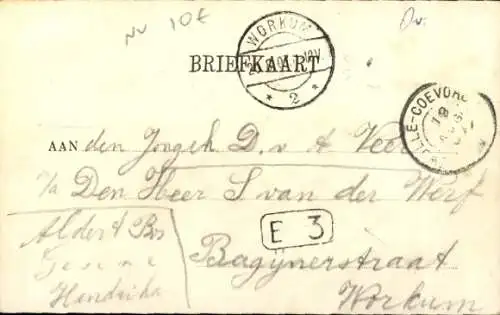 NV 10E
Ov.
WORKUM
BRIEFKAART
2
ZWOLLE-COEVORDEN
AAN den Jongeh D. v d Veer
p/a Den Heer S van der Werf
E 3
Bagijnerstraat
Workum
Aldert Bos
Hendrika